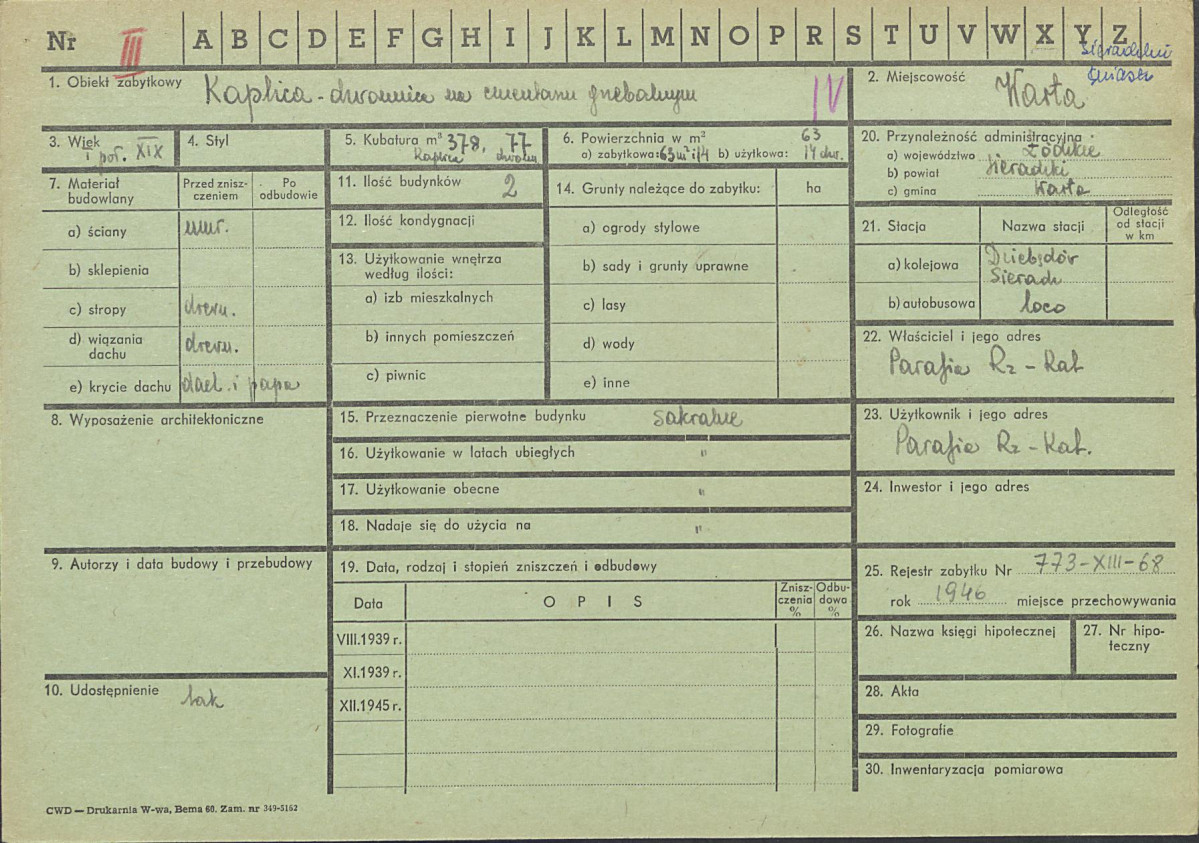 Nr III A B C D E F G H I J K L M N O P R S T U V W X Y Z
1. Obiekt zabytkowy Kaplica - dzwonnica na cmentarzu grzebalnym IV
2. Miejscowość Warta
3. Wiek i poł. XIX
4. Styl
5. Kubatura m³ 378, 77
kaplica dzwon
6. Powierzchnia w m² 63
a) zabytkowa: 63m² i 14 b) użytkowa: 14 dzw.
20. Przynależność administracyjna
a) województwo Łódzkie
b) powiat Sieradzki
c) gmina Warta
7. Materiał budowlany
Przed zniszczeniem
Po odbudowie
a) ściany mur.
b) sklepienia
c) stropy drewn.
d) wiązania dachu drewn.
e) krycie dachu dach. i papa
11. Ilość budynków 2
12. Ilość kondygnacji
13. Użytkowanie wnętrza
według ilości:
a) izb mieszkalnych
b) innych pomieszczeń
c) piwnic
14. Grunty należące do zabytku: ha
a) ogrody stylowe
b) sady i grunty uprawne
c) lasy
d) wody
e) inne
21. Stacja
Nazwa stacji
Odległość
od stacji
w km
a) kolejowa
Sieradz
b) autobusowa loco
22. Właściciel i jego adres
Parafia Rz - Kat
8. Wyposażenie architektoniczne
15. Przeznaczenie pierwotne budynku sakralne
16. Użytkowanie w latach ubiegłych "
17. Użytkowanie obecne "
18. Nadaje się do użycia na "
23. Użytkownik i jego adres
Parafia Rz - Kat.
24. Inwestor i jego adres
9. Autorzy i data budowy i przebudowy
19. Data, rodzaj i stopień zniszczeń i odbudowy
Data
OPIS
Zniszczenia %
Odbudowa %
VIII.1939 r.
XI.1939 r.
XII.1945 r.
10. Udostępnienie tak
25. Rejestr zabytku Nr 773-XIII-68
rok 1946 miejsce przechowywania
26. Nazwa księgi hipotecznej
27. Nr hipoteczny
28. Akta
29. Fotografie
30. Inwentaryzacja pomiarowa
CWD — Drukarnia W-wa, Bema 60. Zam. nr 349-5162